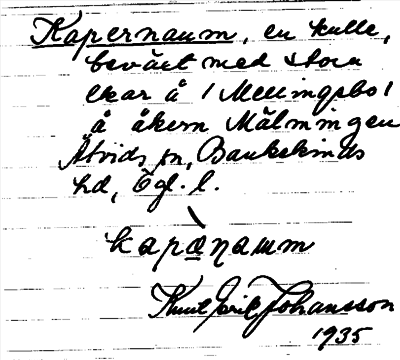 Kapernaum, en kulle,
beväxt med stora
ekar å 1 Mellingsbo 1
å åkern Målmingen
Åtvids sn, Bankekinds
hd, Ögl. l.
kapạ̀naum
Knut Erik Johansson
1935